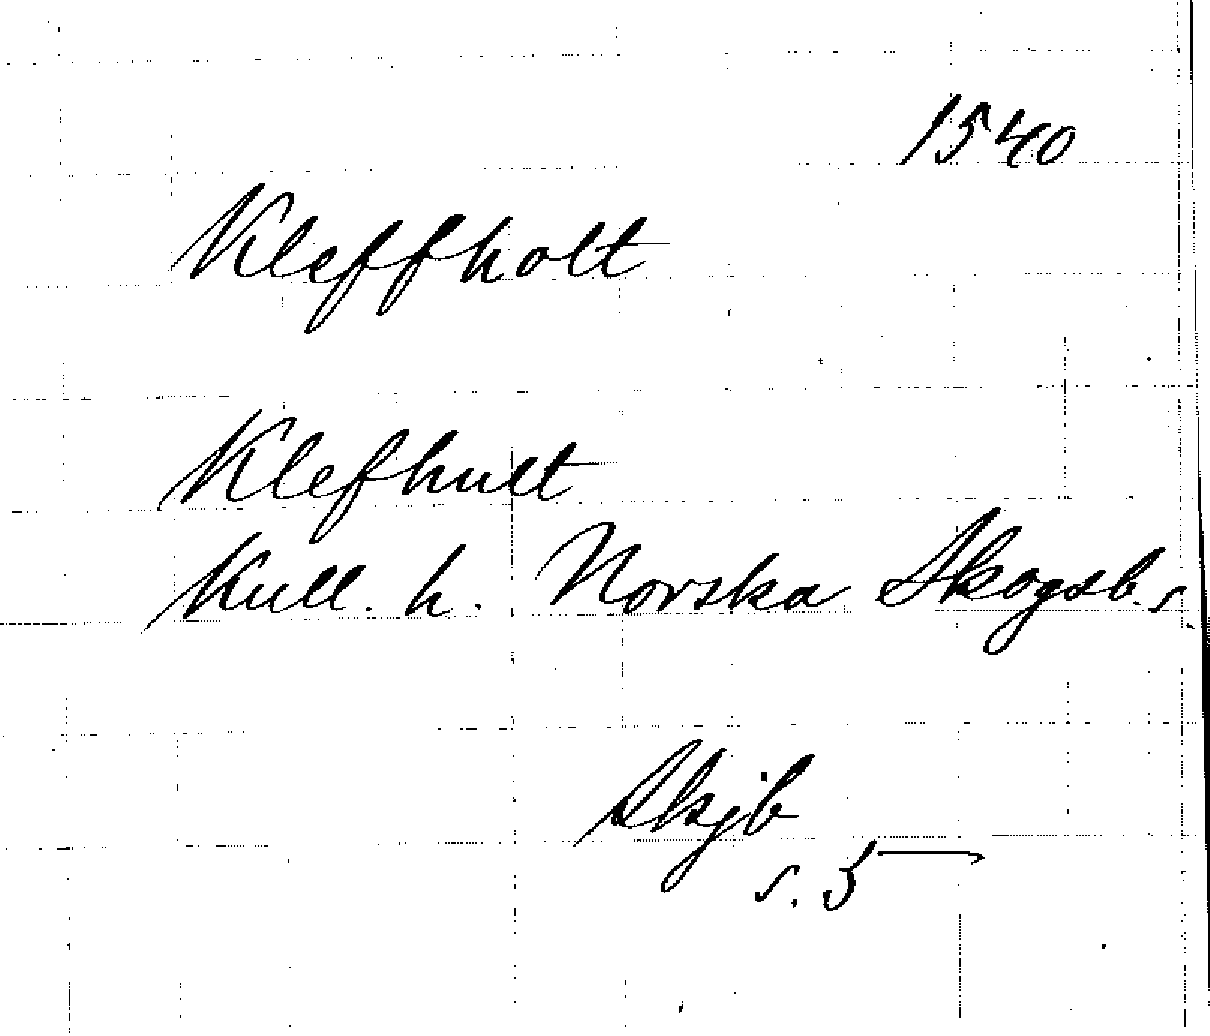 1540
Kleffholt
Klefhult
Kull. h. Norska Skogsb. s.
Skjb
s. 5